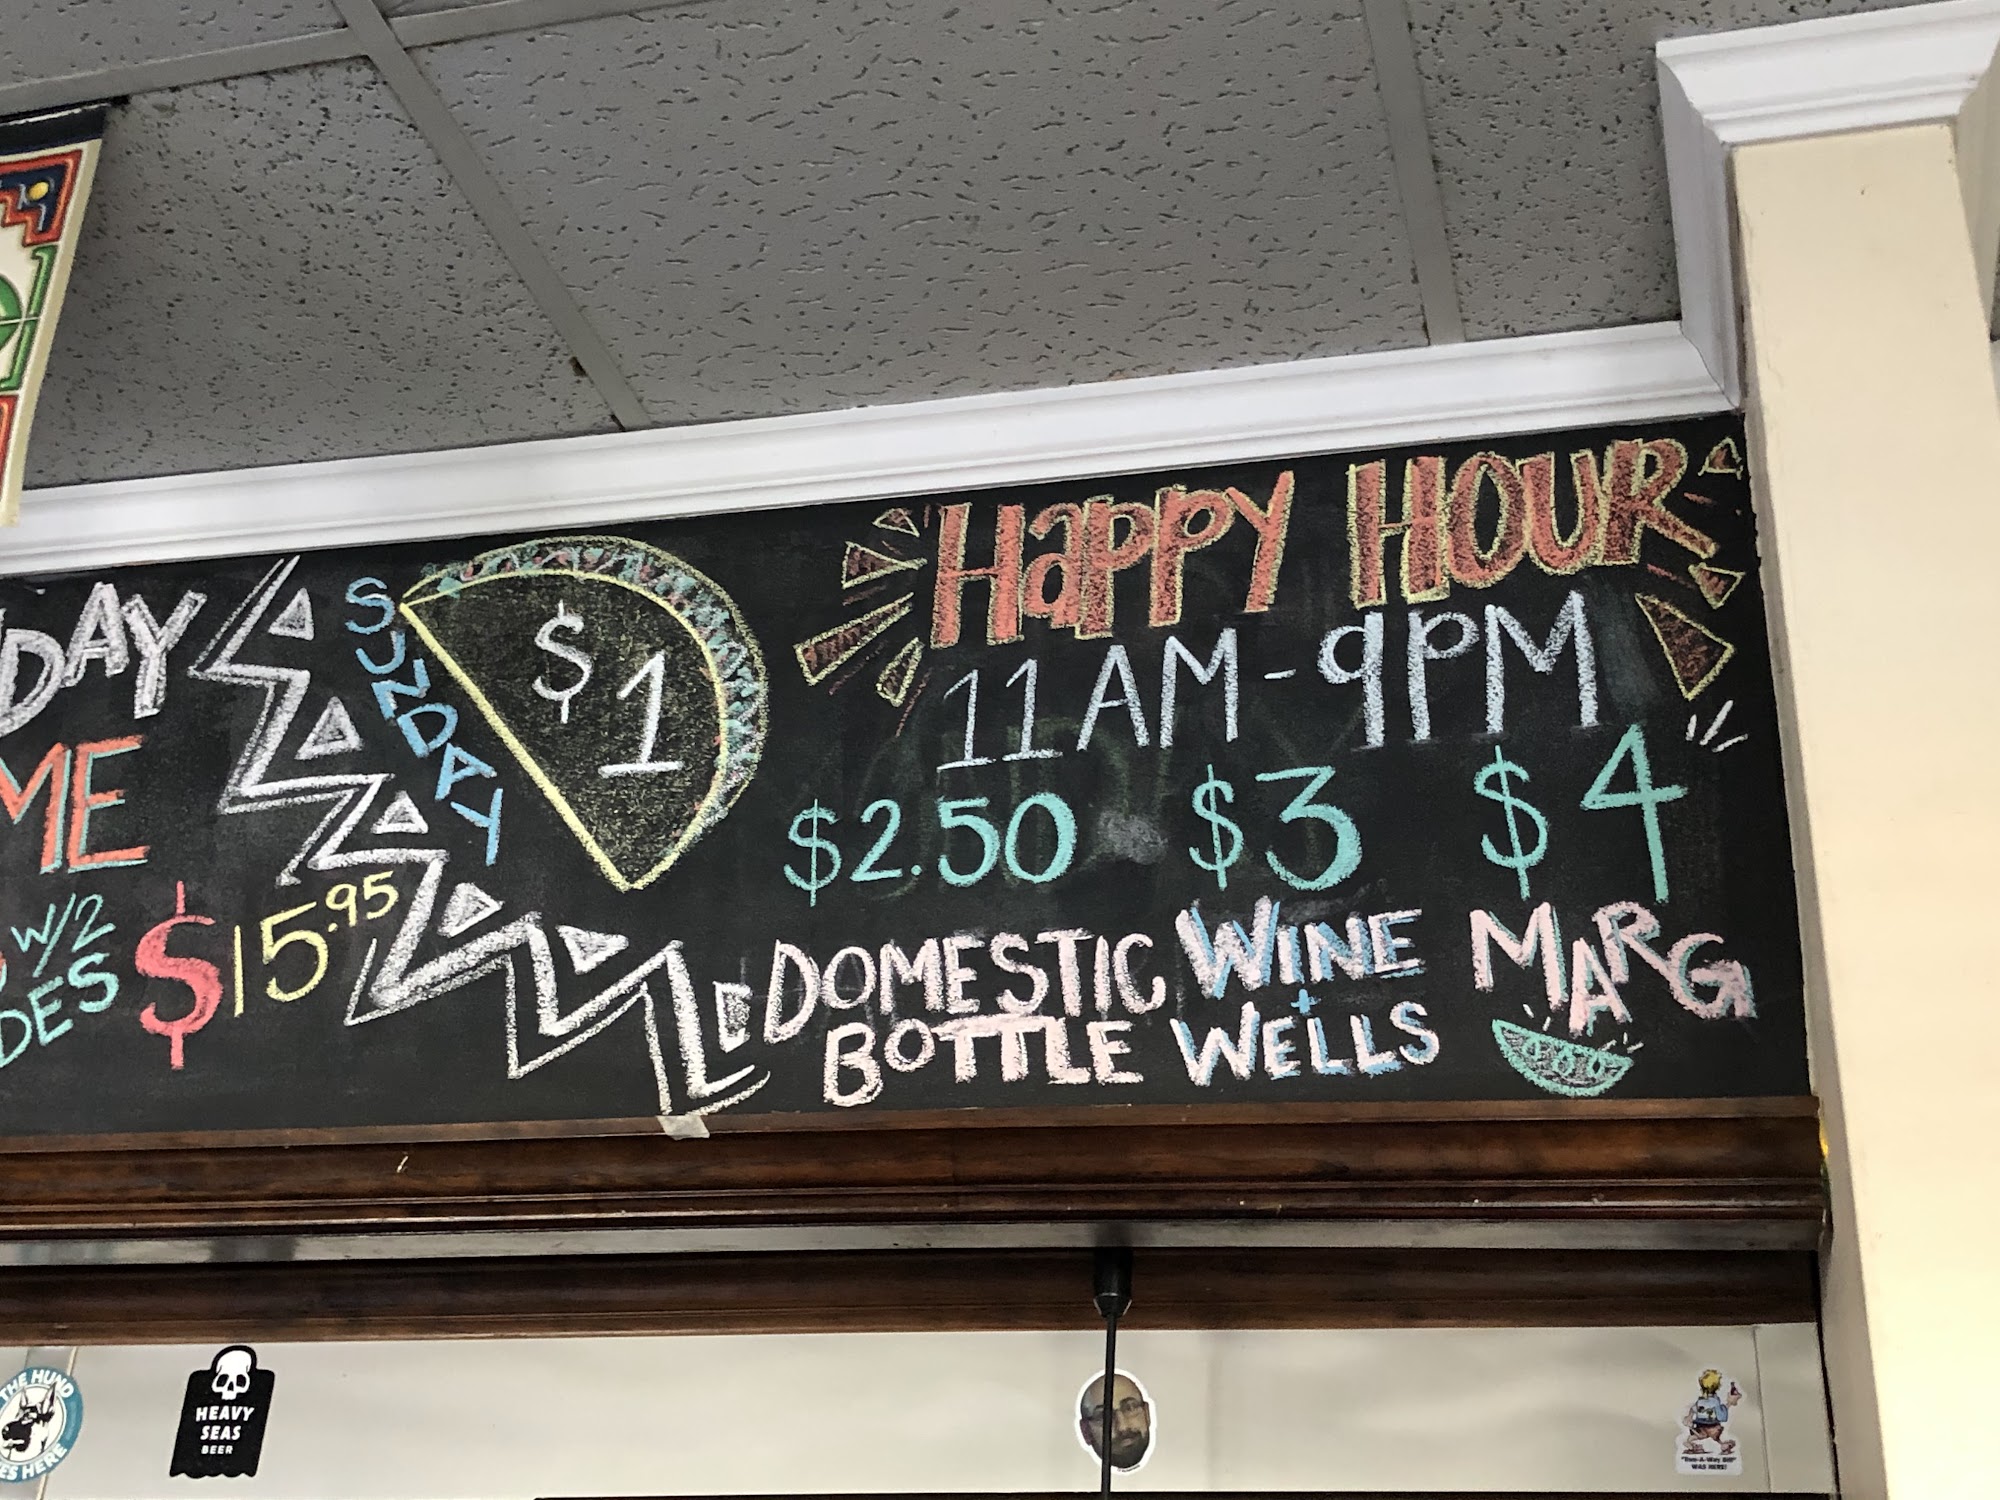 DAY
ME
W/2
DES
$15.95
SUNDAY
$1
HAPPY HOUR
11AM-9PM
$2.50 $3 $4
DOMESTIC BOTTLE
WINE + WELLS
MARG
THE HUND
ES HERE
HEAVY
SEAS
BEER
WAS HERE!